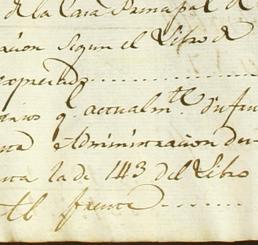 de la Casa Principal de
ación segun el Libro de
copiado..........
q. actualm.te disfru
ta Administracion de
ta la de 143 del Libro
frente........